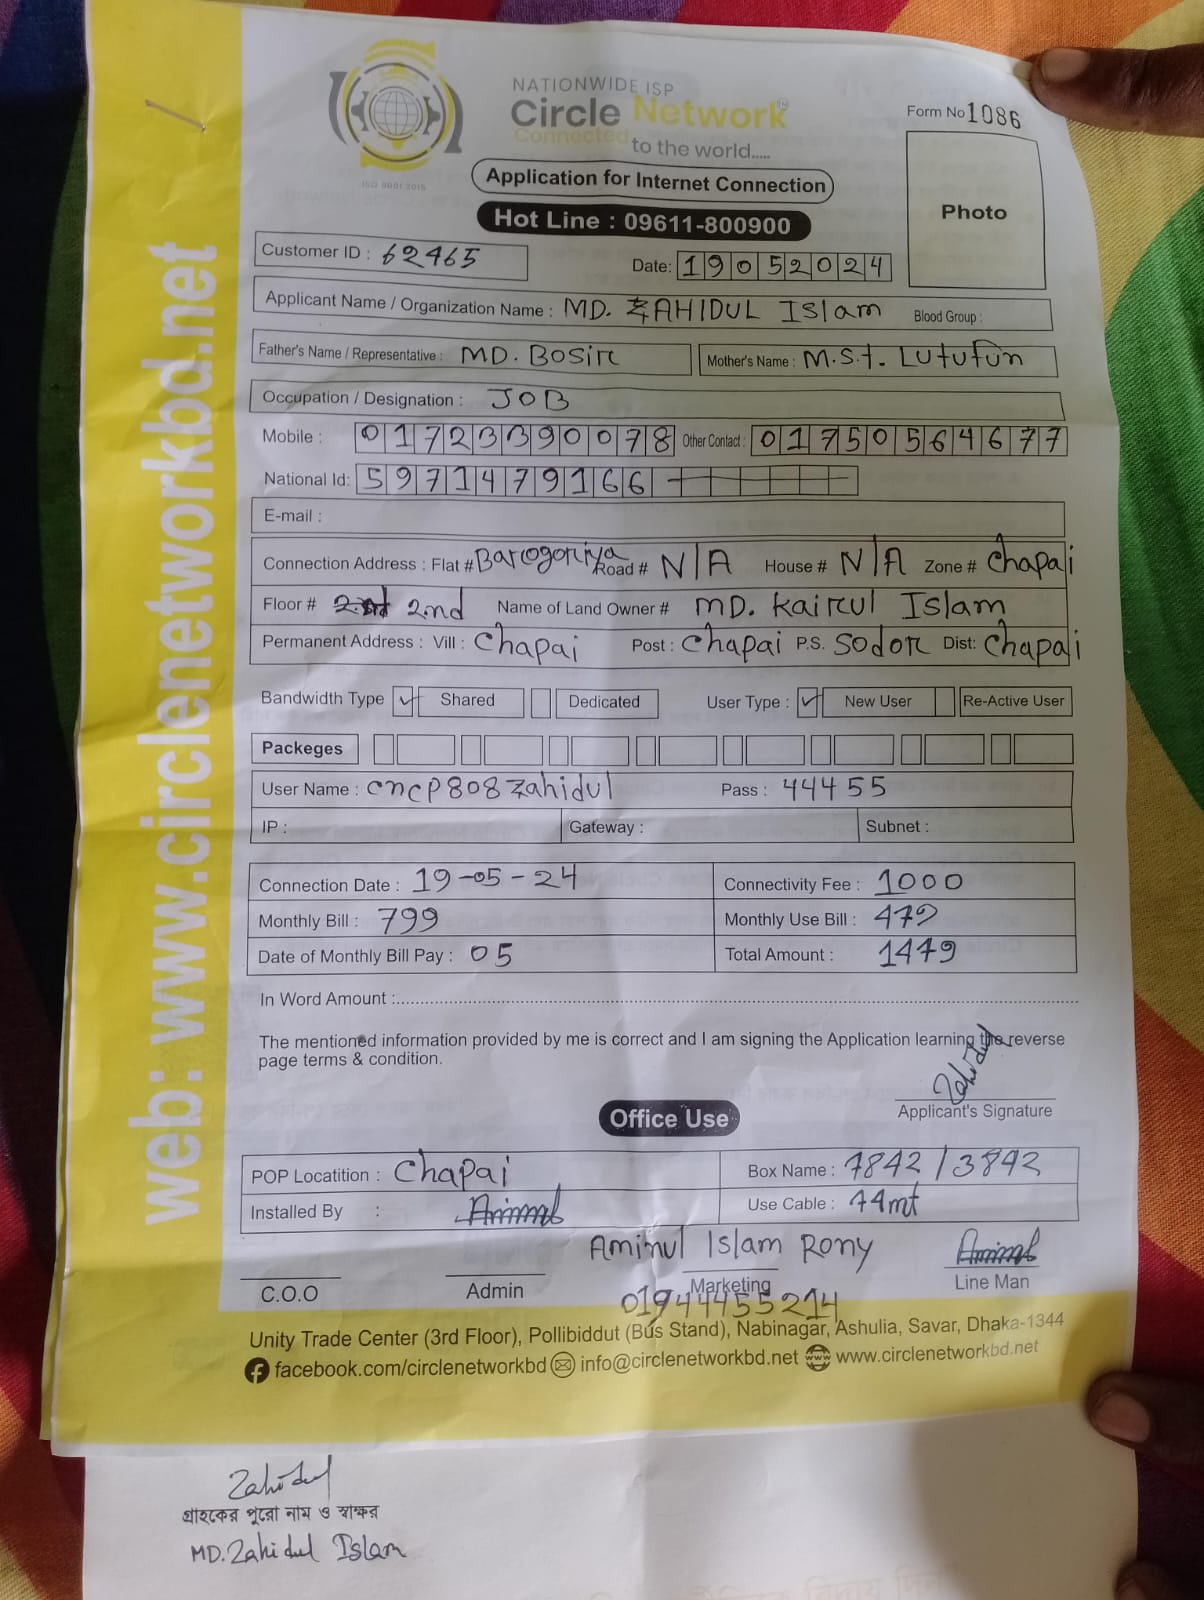 NATIONWIDE ISP
Circle Network
Connected to the world.....
ISO 9001:2015
Form No 1086
Application for Internet Connection
Photo
Hot Line : 09611-800900
Customer ID : 62465
Date: 19052024
Applicant Name / Organization Name : MD. ZAHIDUL Islam Blood Group :
Father's Name / Representative : MD. BOSIR Mother's Name : M.S.t. LUtufun
Occupation / Designation : JOB
Mobile : 01723390078 Other Contact : 01750564677
National Id: 5971479166
E-mail :
Connection Address : Flat # Barogoriya Road # N/A House # N/A Zone # Chapai
Floor # 2nd Name of Land Owner # MD. Kairul Islam
Permanent Address : Vill : Chapai Post : Chapai P.S. Sodor Dist: Chapai
Bandwidth Type ✓ Shared Dedicated User Type : ✓ New User Re-Active User
Packeges
User Name : cncp808zahidul Pass : 44455
IP : Gateway : Subnet :
Connection Date : 19-05-24 Connectivity Fee : 1000
Monthly Bill : 799 Monthly Use Bill : 479
Date of Monthly Bill Pay : 05 Total Amount : 1479
In Word Amount :
The mentioned information provided by me is correct and I am signing the Application learning the reverse
page terms & condition.
Zahidul
Applicant's Signature
Office Use
POP Locatition : Chapai Box Name : 7842/3842
Installed By : Use Cable : 74mt
Aminul Islam Rony
C.O.O Admin Marketing Line Man
01944455214
Unity Trade Center (3rd Floor), Pollibiddut (Bus Stand), Nabinagar, Ashulia, Savar, Dhaka-1344
facebook.com/circlenetworkbd info@circlenetworkbd.net www.circlenetworkbd.net
web: www.circlenetworkbd.net
Zahidul
গ্রাহকের পুরো নাম ও স্বাক্ষর
MD. Zahidul Islam